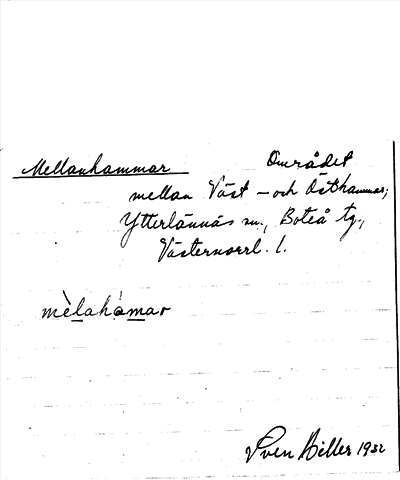 Mellanhammar Området
mellan Väst- och Östhammar,
Ytterlännäs sn., Boteå tg.,
Västernorrl. l.
mèlahàmar
Sven Hiller 1932